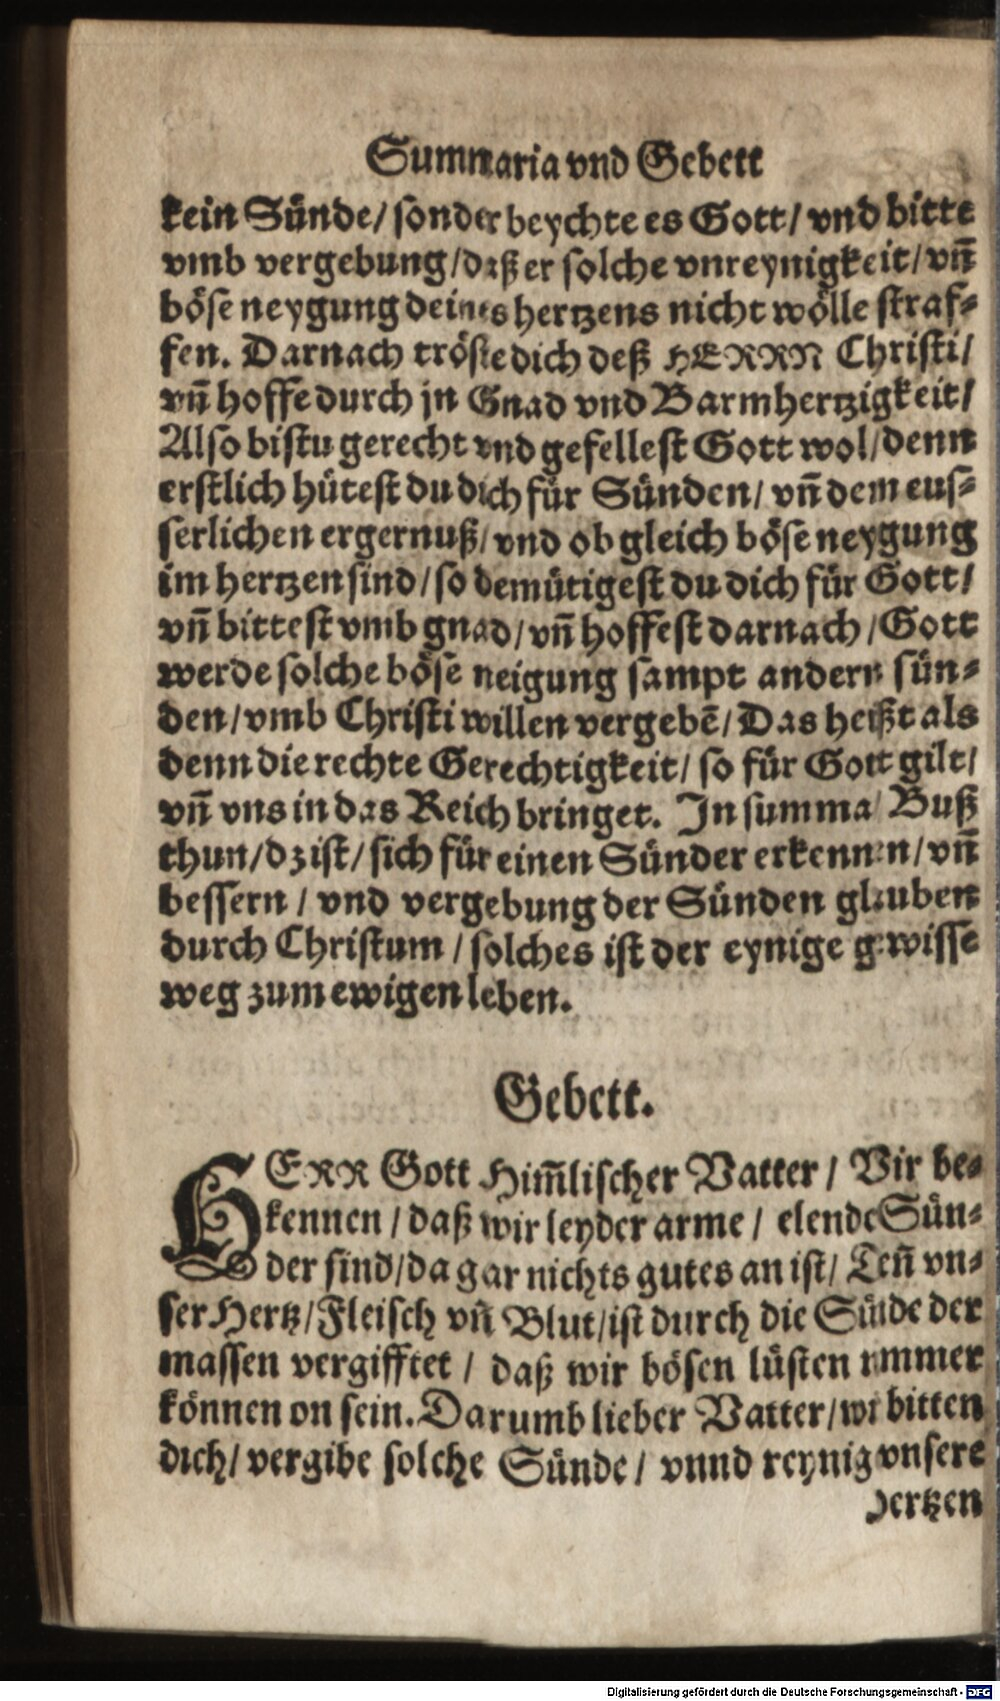 Summaria vnd Gebett
kein Sünde/ sonder beychte es Gott/ vnd bitte
vmb vergebung/ daß er solche vnreynigkeit/ vñ
böse neygung deines hertzens nicht wölle straf-
fen. Darnach tröste dich deß HERRN Christi/
vñ hoffe durch jn Gnad vnd Barmhertzigkeit/
Also bistu gerecht vnd gefellest Gott wol/ denn
erstlich hütest du dich für Sünden/ vñ dem eus-
serlichen ergernuß/ vnd ob gleich böse neygung
im hertzen sind/ so demütigest du dich für Gott/
vñ bittest vmb gnad/ vñ hoffest darnach/ Gott
werde solche böse neigung sampt andern sün-
den/ vmb Christi willen vergebẽ/ Das heißt als
denn die rechte Gerechtigkeit/ so für Gott gilt/
vñ vns in das Reich bringet. In summa/ Buß
thun/ dz ist/ sich für einen Sünder erkennen/ vñ
bessern/ vnd vergebung der Sünden glauben
durch Christum/ solches ist der eynige gewisse
weg zum ewigen leben.
Gebett.
HERR Gott Him̃lischer Vatter/ Wir be-
kennen/ daß wir leyder arme/ elende Sün-
der sind/ da gar nichts gutes an ist/ Deñ vn-
ser Hertz/ Fleisch vñ Blut/ ist durch die Sünde der
massen vergifftet/ daß wir bösen lüsten nimmer
können on sein. Darumb lieber Vatter/ wir bitten
dich/ vergibe solche Sünde/ vnnd reynig vnsere
Hertzen
Digitalisierung gefördert durch die Deutsche Forschungsgemeinschaft - DFG